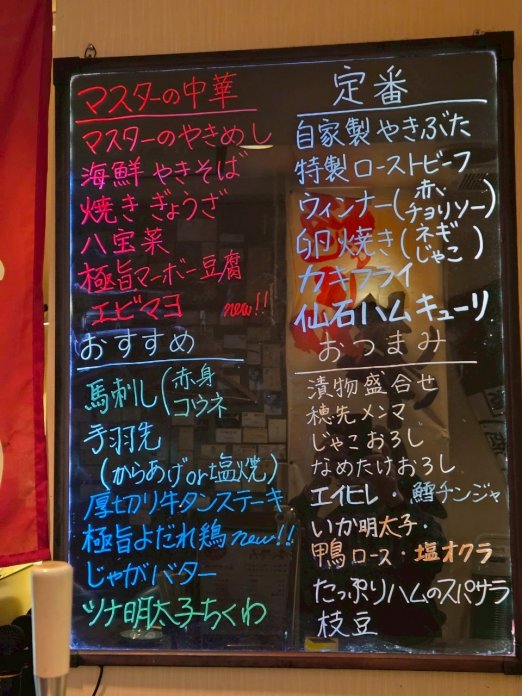 マスターの中華
マスターのやきめし
海鮮やきそば
焼きぎょうざ
八宝菜
極旨マーボー豆腐
エビマヨ new!!
おすすめ
馬刺し(赤身
コウネ
手羽先
(からあげor塩焼)
厚切り牛タンステーキ
極旨よだれ鶏new!!
じゃがバター
ツナ明太子ちくわ
定番
自家製やきぶた
特製ローストビーフ
ウィンナー(赤、
チョリソー)
卵焼き(ネギ
じゃこ)
カキフライ
仙石ハムキューリ
おつまみ
漬物盛合せ
穂先メンマ
じゃこおろし
なめたけおろし
エイヒレ・鱈チンジャ
いか明太子・
鴨ロース・塩オクラ
たっぷりハムのスパサラ
枝豆